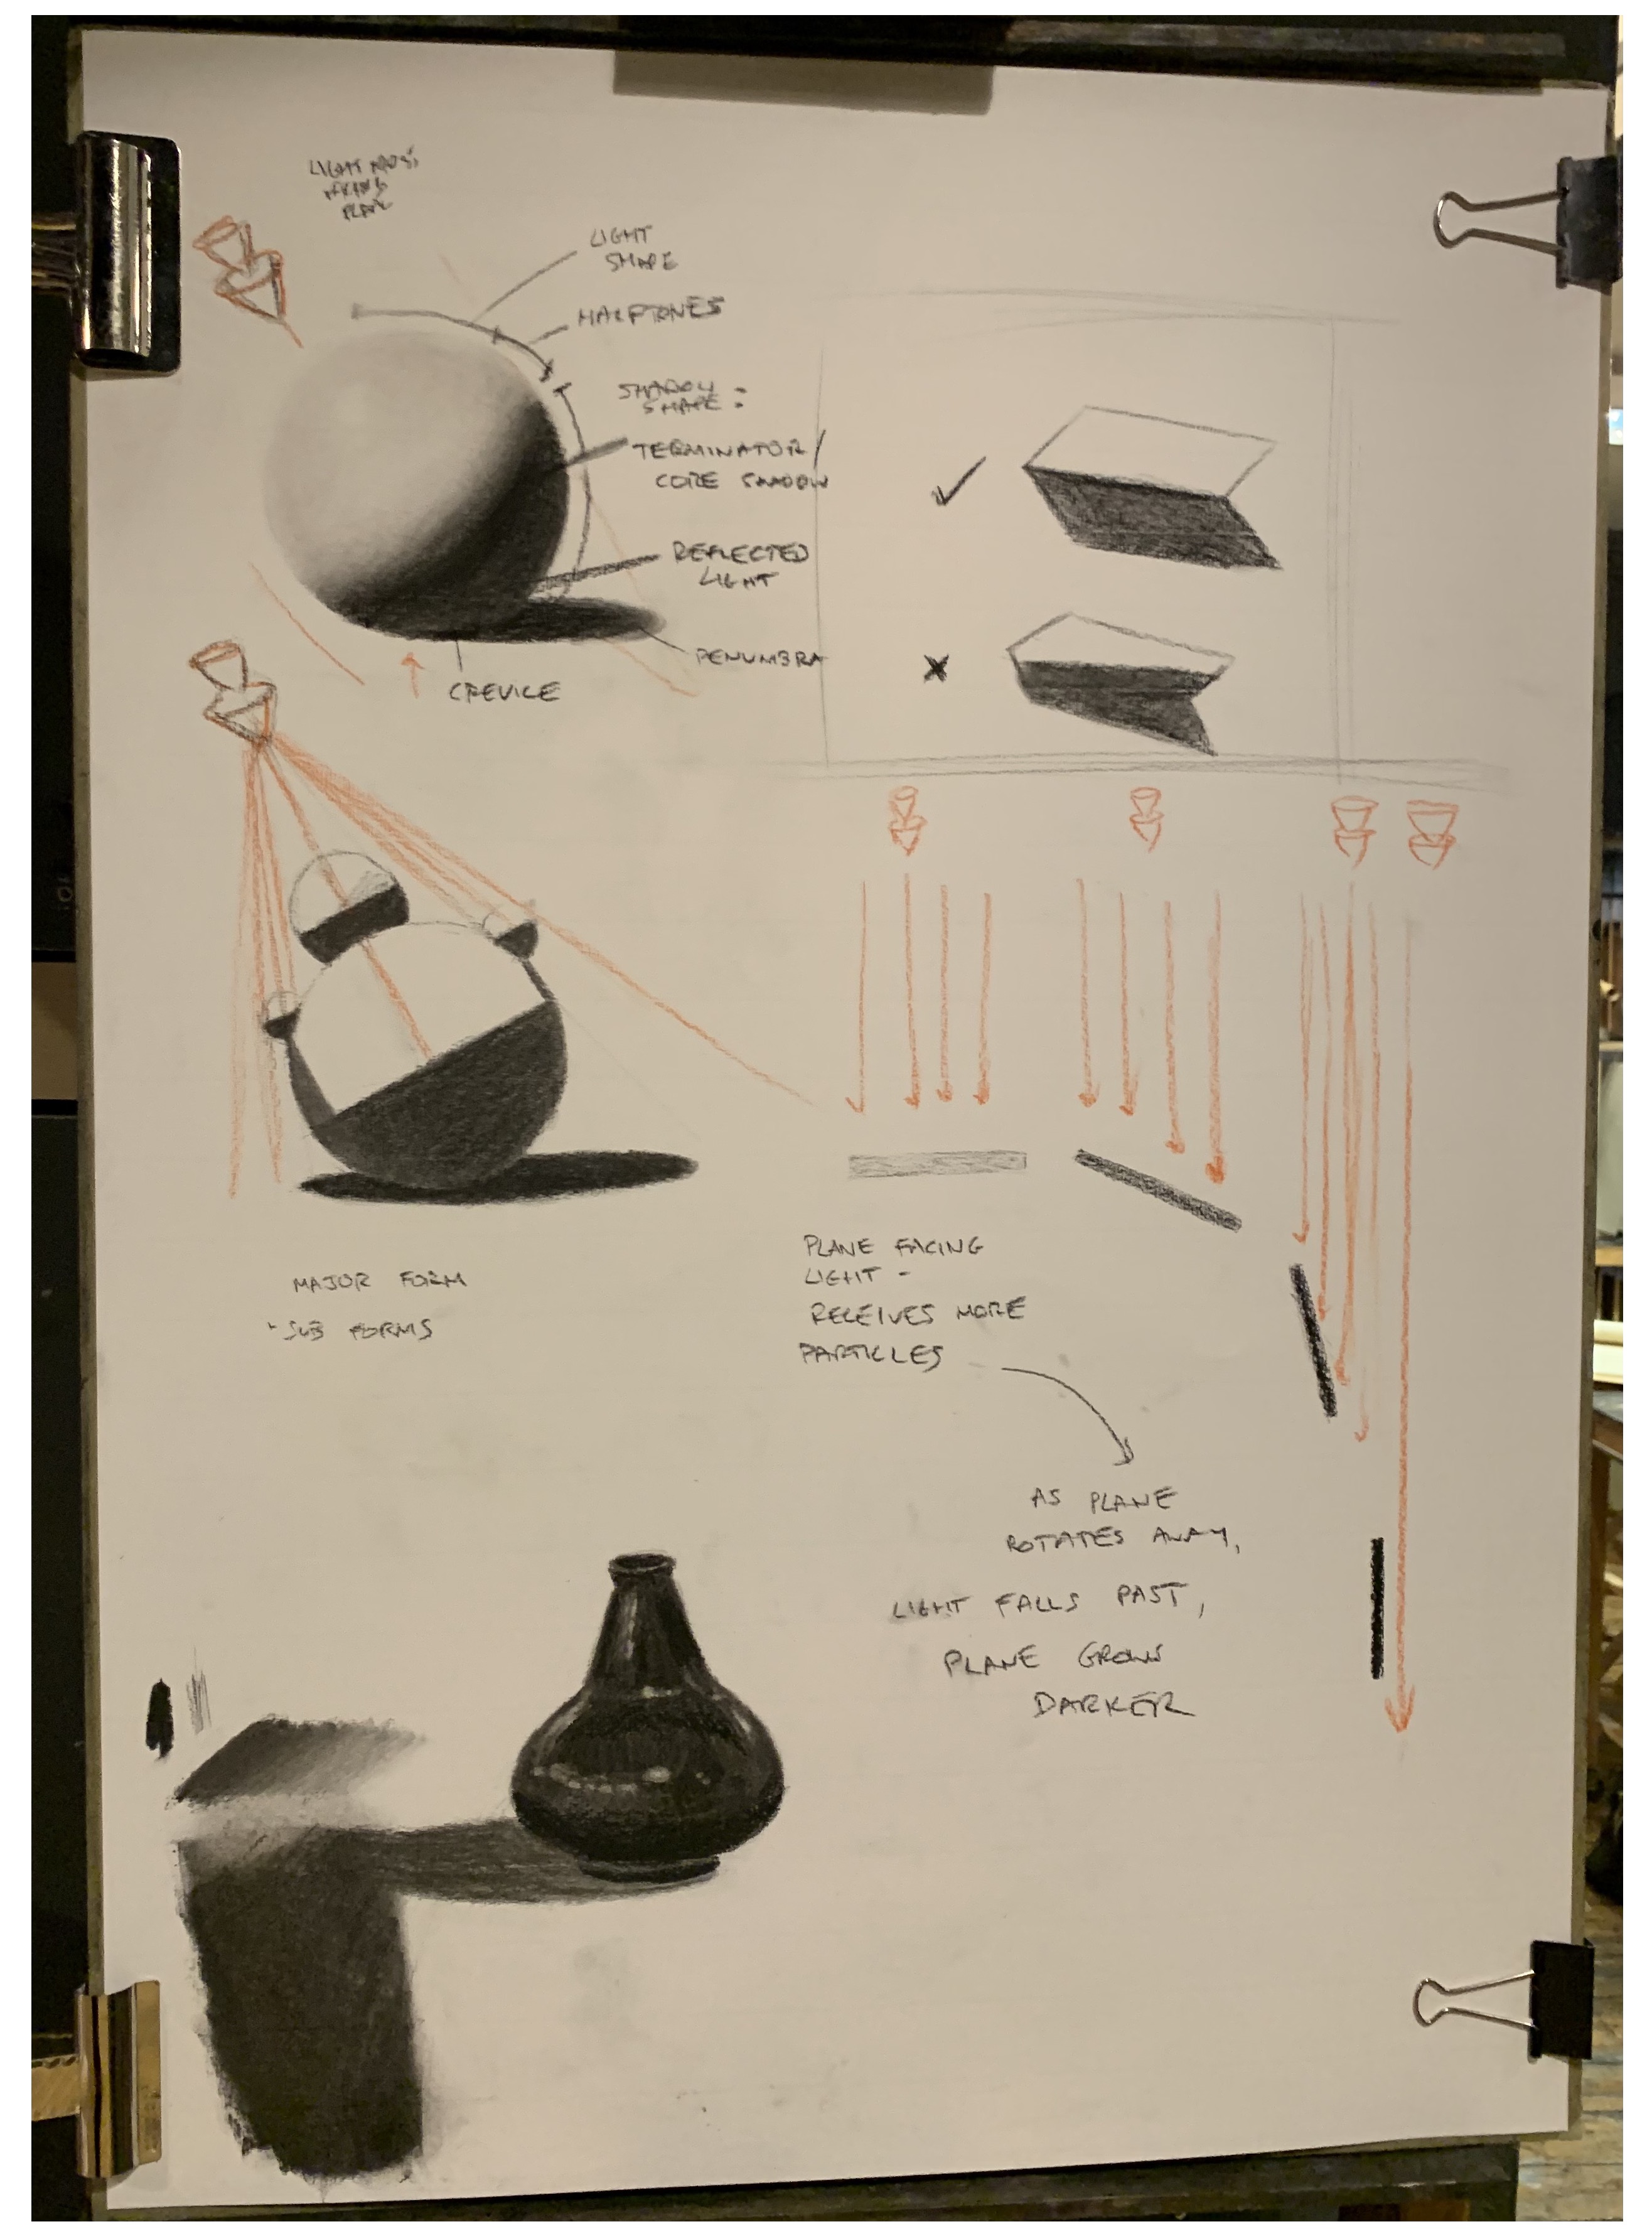 LIGHT
PLANE
LIGHT
SHAPE
HALFTONES
SHADOW
SHAPE:
TERMINATOR/
CORE SHADOW
REFLECTED
LIGHT
PENUMBRA
CREVICE
MAJOR FORM
+ SUB FORMS
PLANE FACING
LIGHT -
RECEIVES MORE
PARTICLES
AS PLANE
ROTATES AWAY,
LIGHT FALLS PAST,
PLANE GROWS
DARKER